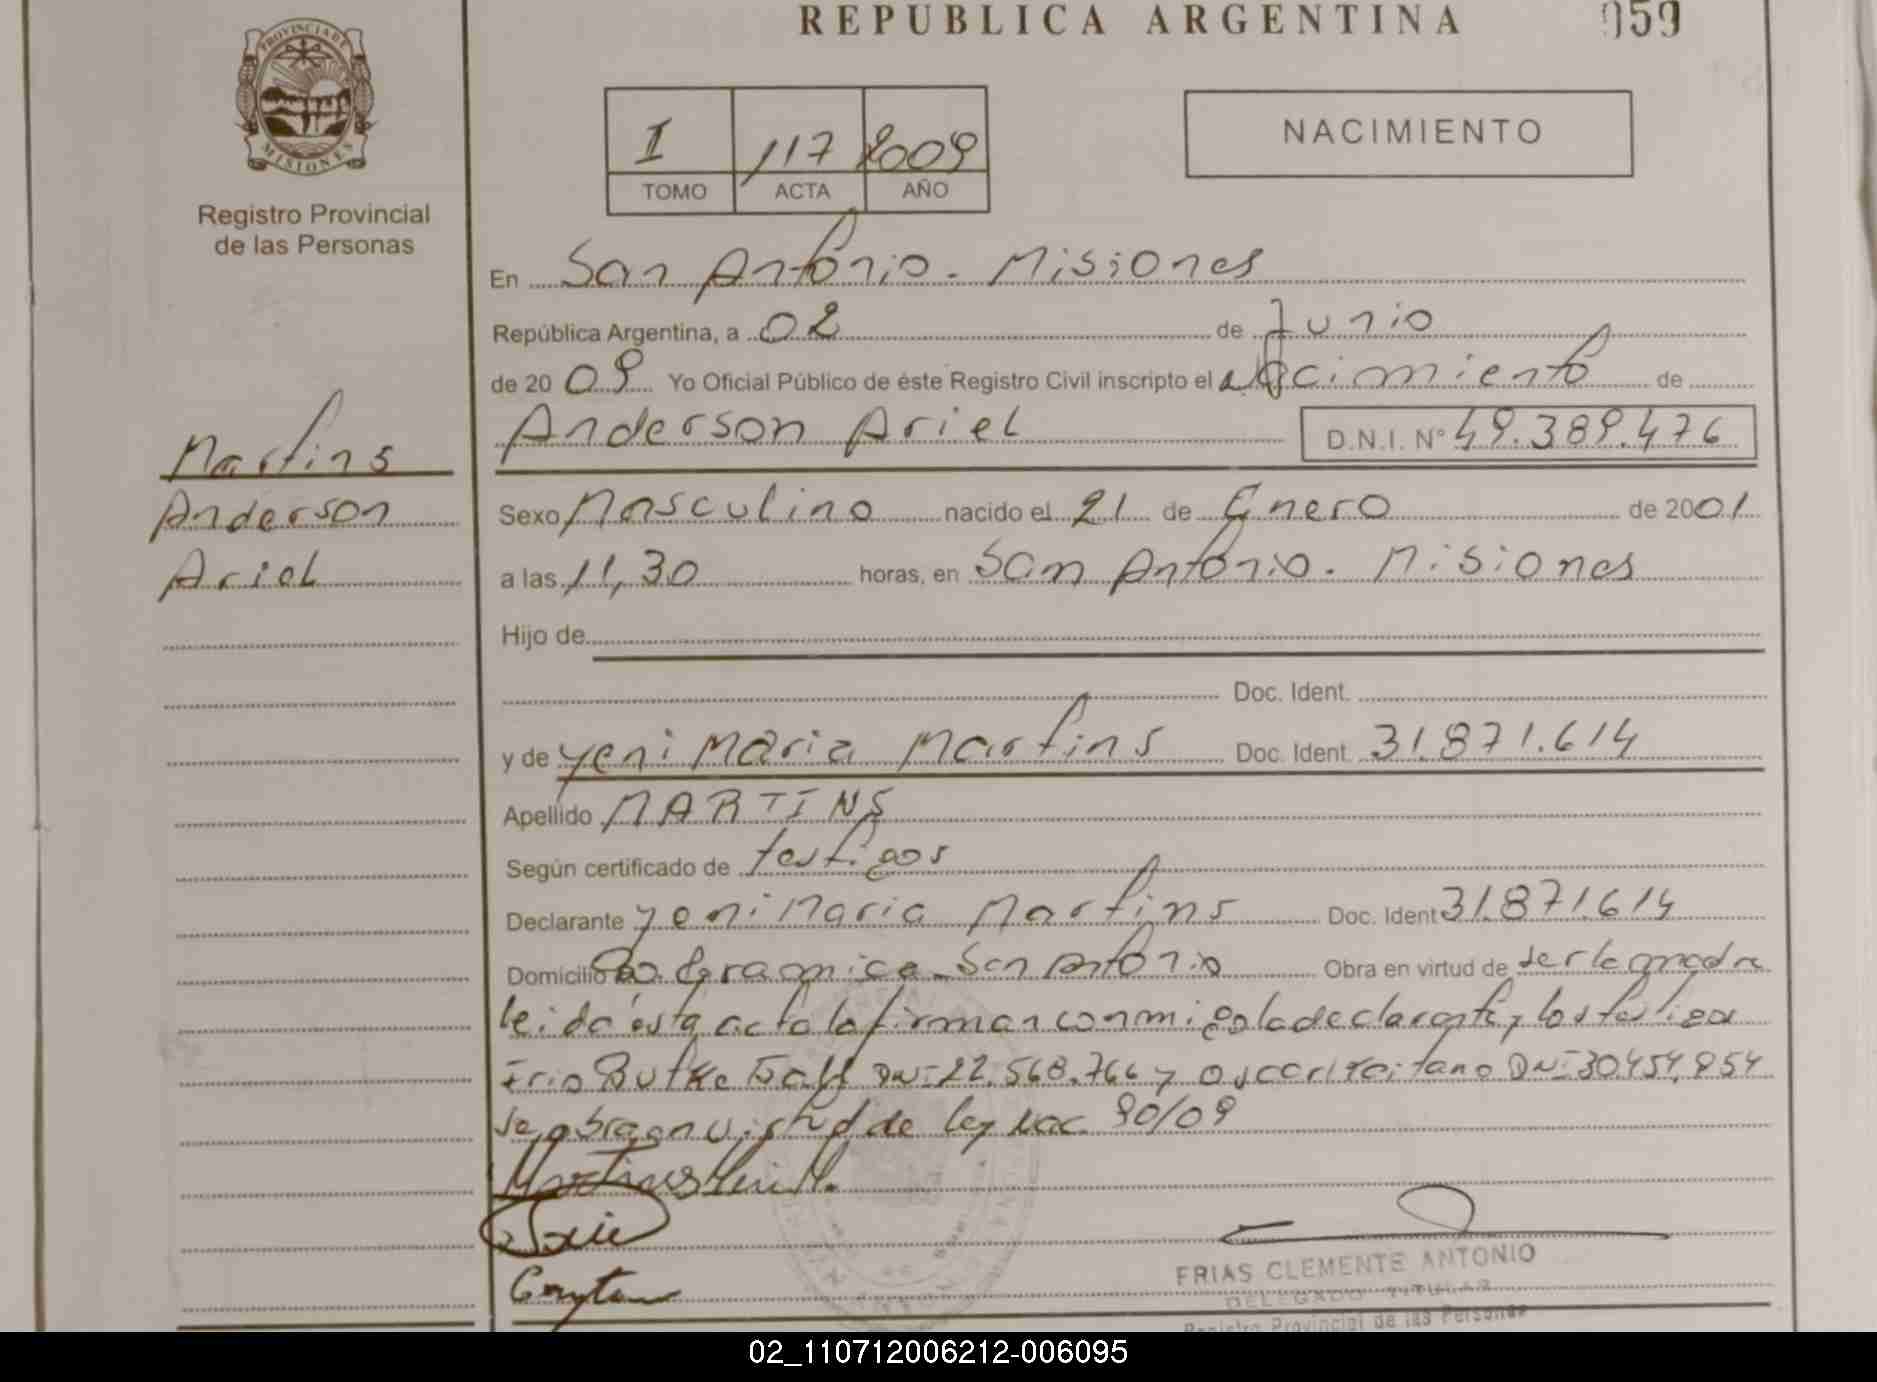 REPUBLICA ARGENTINA
059
PROVINCIA DE
MISIONES
Registro Provincial
de las Personas
I 117 2009
TOMO ACTA AÑO
NACIMIENTO
En San Antonio. Misiones
República Argentina, a 02 de Junio
de 2009 Yo Oficial Público de éste Registro Civil inscripto el nacimiento de
Anderson Ariel D.N.I. Nº 49.389.476
Martins
Anderson
Ariel
Sexo Masculino nacido el 21 de Enero de 2001
a las 11,30 horas, en San Antonio. Misiones
Hijo de
Doc. Ident.
y de Yeni Maria Martins Doc. Ident. 31.871.614
Apellido MARTINS
Según certificado de testigos
Declarante Yeni Maria Martins Doc. Ident 31.871.614
Domicilio San Antonio Obra en virtud de ser la madre
leida ésta acta la firman conmigo la declarante y los testigos
DNI 22.568.766 y DNI 30.454.854
se obra en virtud de ley nac. 90/09
FRIAS CLEMENTE ANTONIO
DELEGADO TITULAR
Registro Provincial de las Personas
02_110712006212-006095